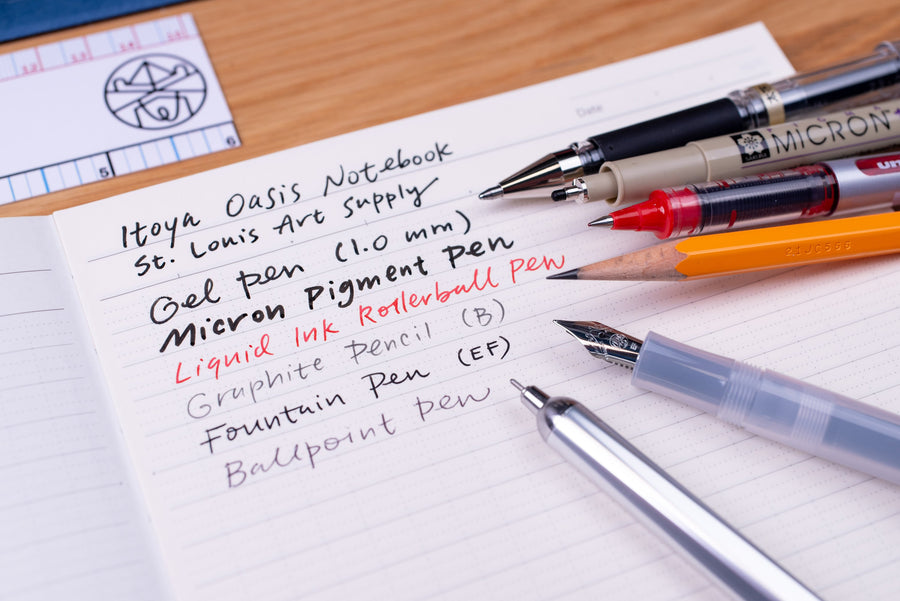 12 13 14 15
5 6
Date
Itoya Oasis Notebook
St. Louis Art Supply
Gel pen (1.0 mm)
Micron Pigment Pen
Liquid Ink Rollerball Pen
Graphite Pencil (B)
Fountain Pen (EF)
Ballpoint pen
MICRON
uni